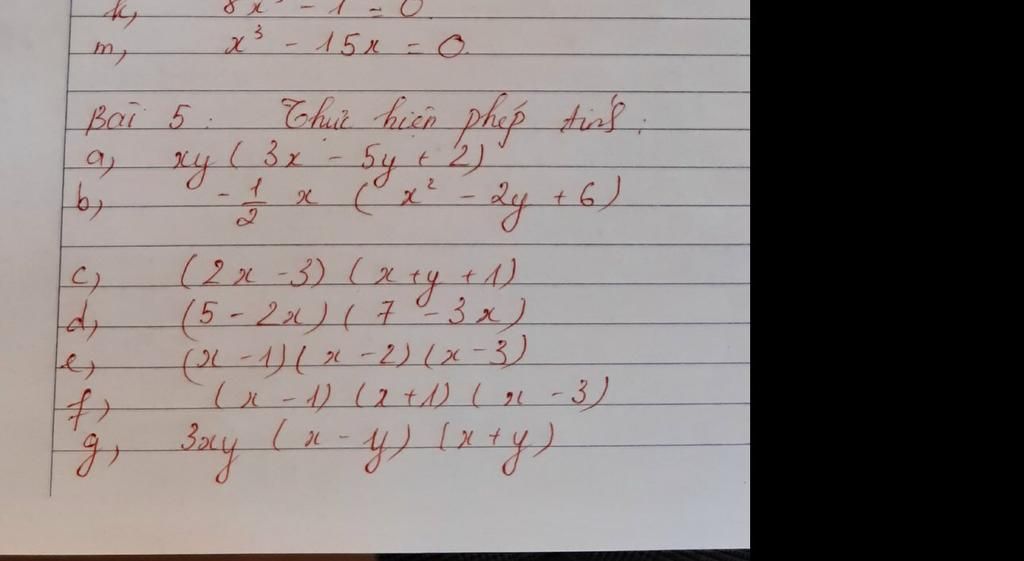 k, 8x³ - 1 = 0
m, x³ - 15x = 0.
Bài 5 : Thực hiện phép tính :
a, xy ( 3x - 5y + 2)
b, - 1/2 x ( x² - 2y + 6 )
c, (2x - 3) ( x + y + 1)
d, (5 - 2x) ( 7 - 3x )
e, (x - 1) ( x - 2) (x - 3)
f, ( x - 1) (x + 1) ( x - 3)
g, 3xy ( x - y ) ( x + y )